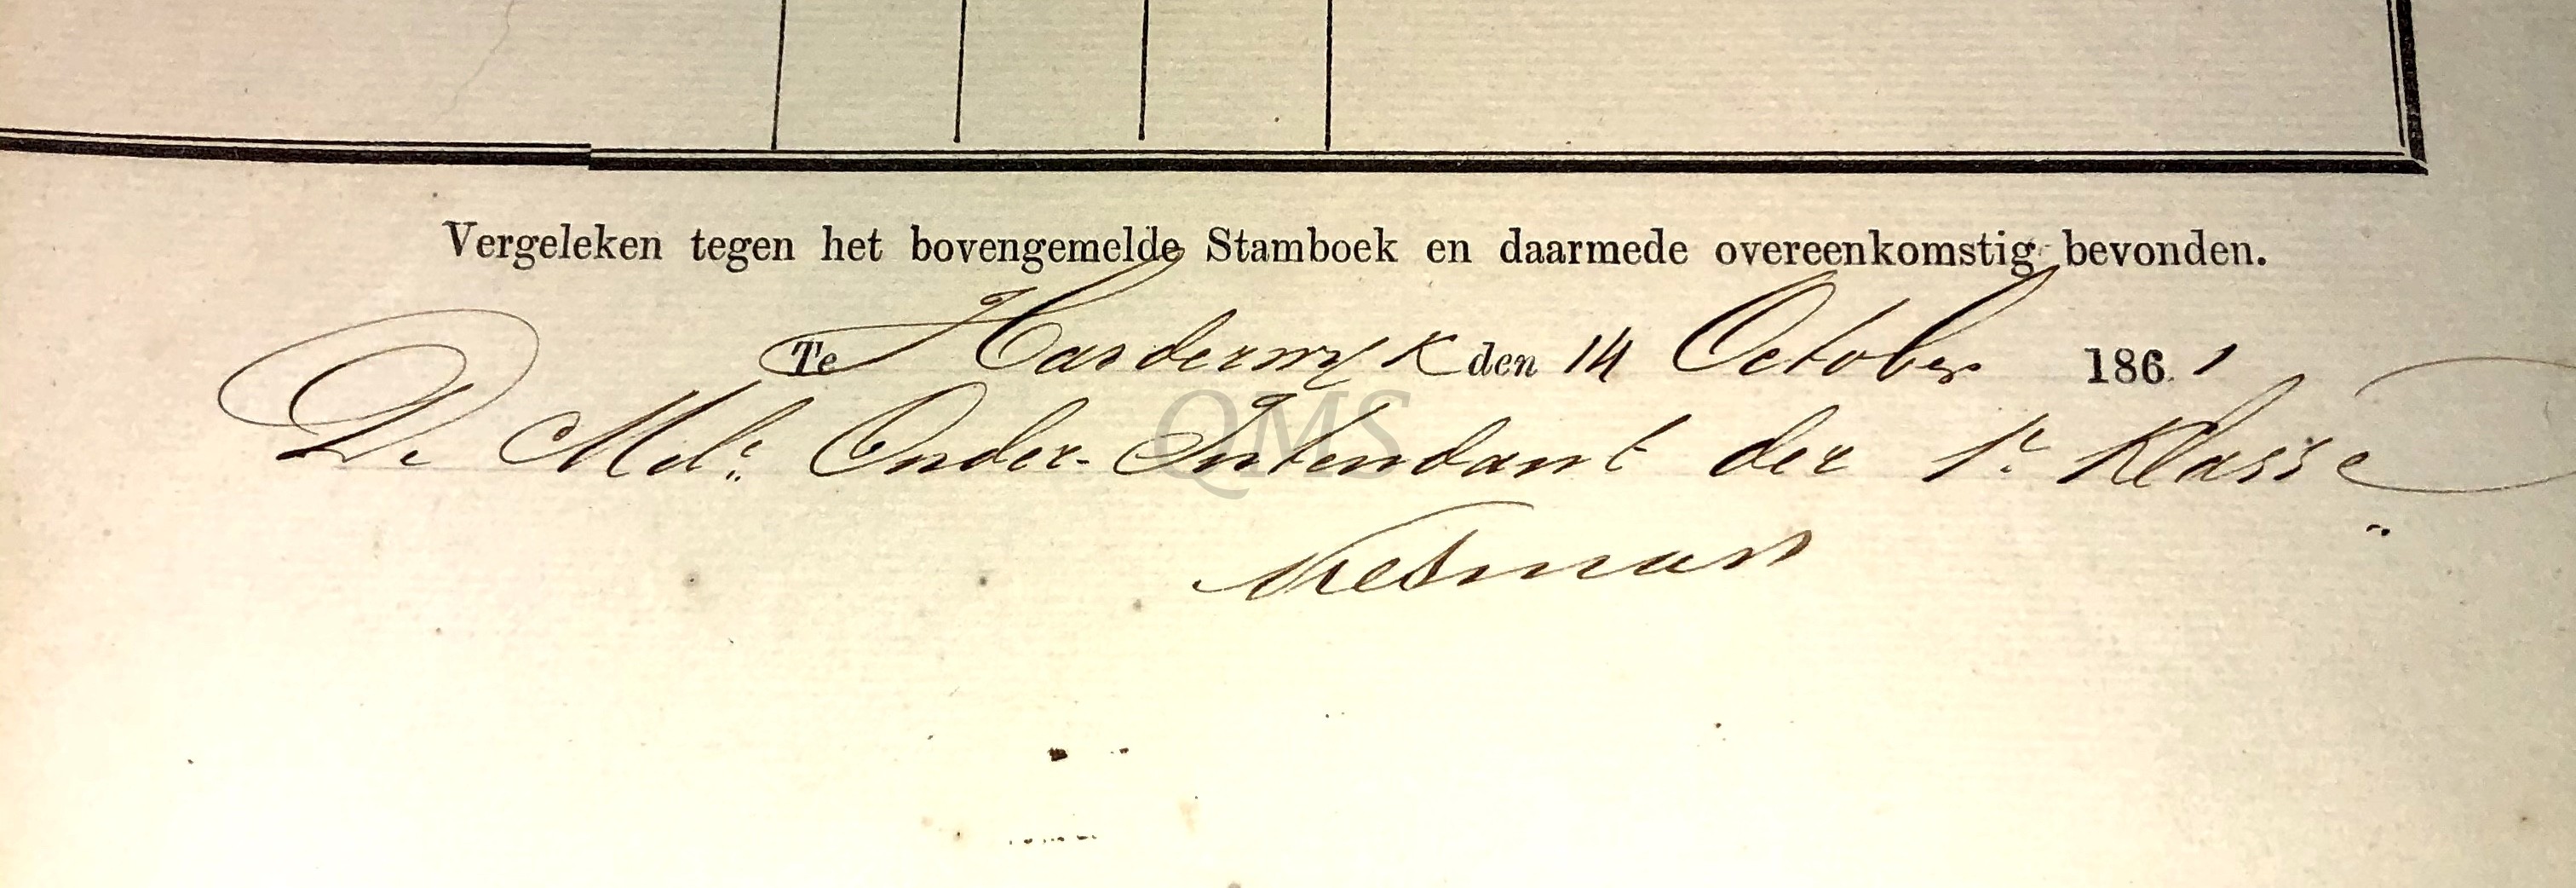 Vergeleken tegen het bovengemelde Stamboek en daarmede overeenkomstig bevonden.
Te Harderwyk den 14 October 1861
De Milr. Onder-Intendant der 1e Klasse
QMS